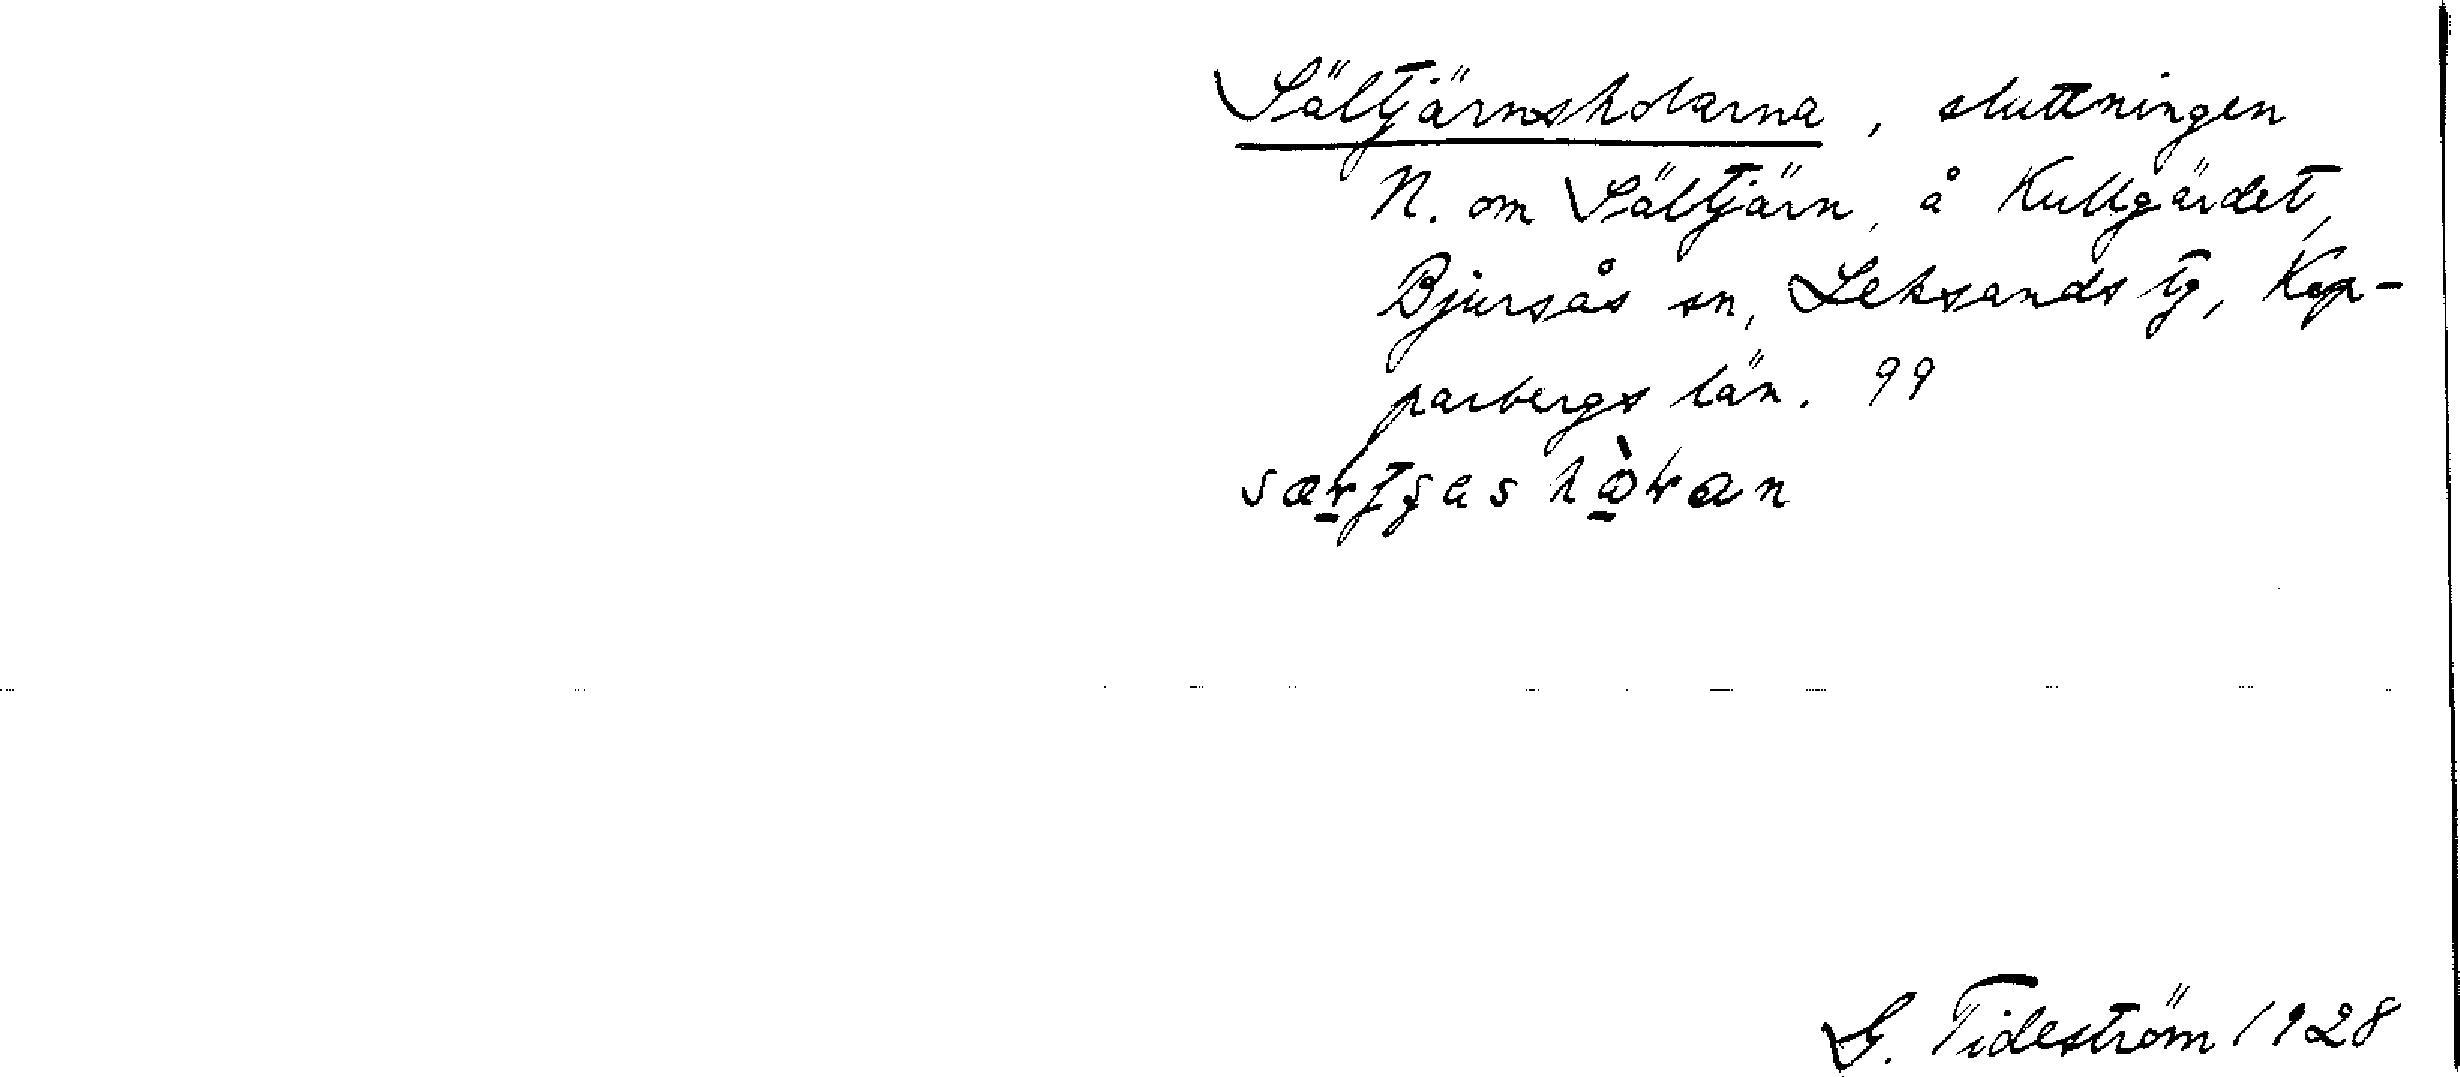 Sältjärnsholarna, sluttningen
N. om Sältjärn, å Kullgärdet,
Bjursås sn, Leksands tg, Kop-
parbergs län. 99
G. Tideström 1928